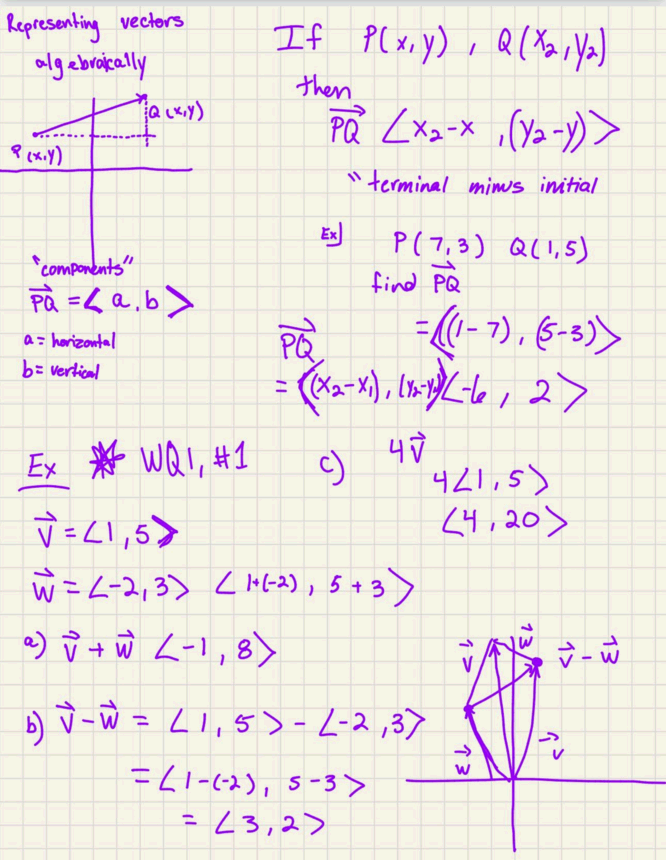 Representing vectors
algebraically
Q (x,y)
P (x,y)
"components"
PQ = < a, b >
a = horizontal
b = vertical
If P(x,y) , Q(x₂,y₂)
then
PQ <x₂-x ,(y₂-y)>
"terminal minus initial
Ex] P(7,3) Q(1,5)
find PQ
PQ = <(1-7), (5-3)>
= <(x₂-x₁), (y₂-y₁)> <-6, 2>
Ex * WQ1, #1
v = <1,5>
w = <-2,3> <1+(-2), 5+3>
a) v + w <-1, 8>
b) v-w = <1,5> - <-2,3>
= <1-(-2), 5-3>
= <3,2>
c) 4v
4<1,5>
<4,20>
v w v - w
w v